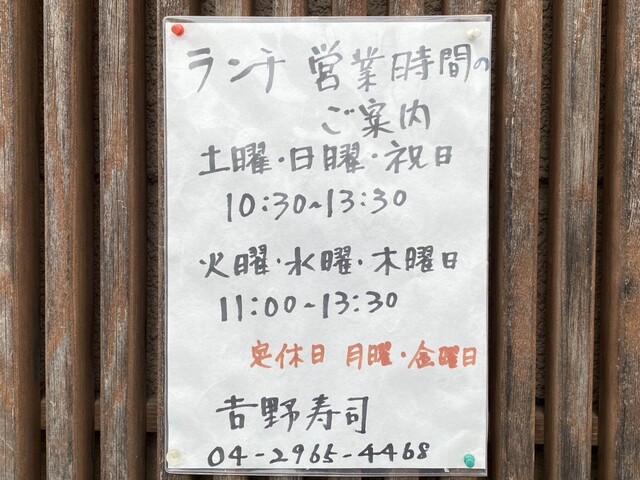 ランチ 営業時間の
ご案内
土曜・日曜・祝日
10:30~13:30
火曜・水曜・木曜日
11:00~13:30
定休日 月曜・金曜日
吉野寿司
04-2965-4468